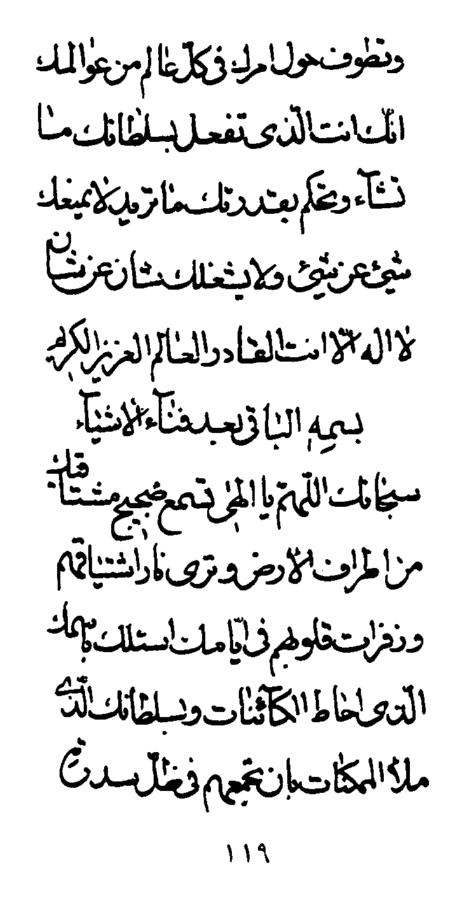 وتطوف حول امرك فی کلّ عالم من عوالمك
انّك انت الّذی تفعل بسلطانك ما
تشآء و تحکم بقدرتك ما ترید لا یمنعك
شیئ عن شیئ ولا یشغلك شان عن شان
لا اله الّا انت القادر العالم العزیز الکریم
بسمه الباقی بعد فنآء الاشیآء
سبحانك اللّهمّ یا الهی تسمع ضجیج مشتاقیك
من اطراف الارض و تری نار اشتیاقهم
و زفرات قلوبهم فی ایّامك اسئلك باسمك
الّذی احاط الکآئنات و بسلطانك الّذی
ملأ الممکنات بان تجمعهم فی ظلّ سدرة
۱۱۹